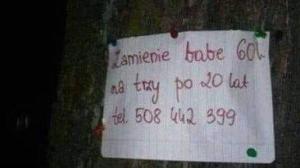 Zamienie babe 60l.
na trzy po 20 lat
tel. 508 442 399